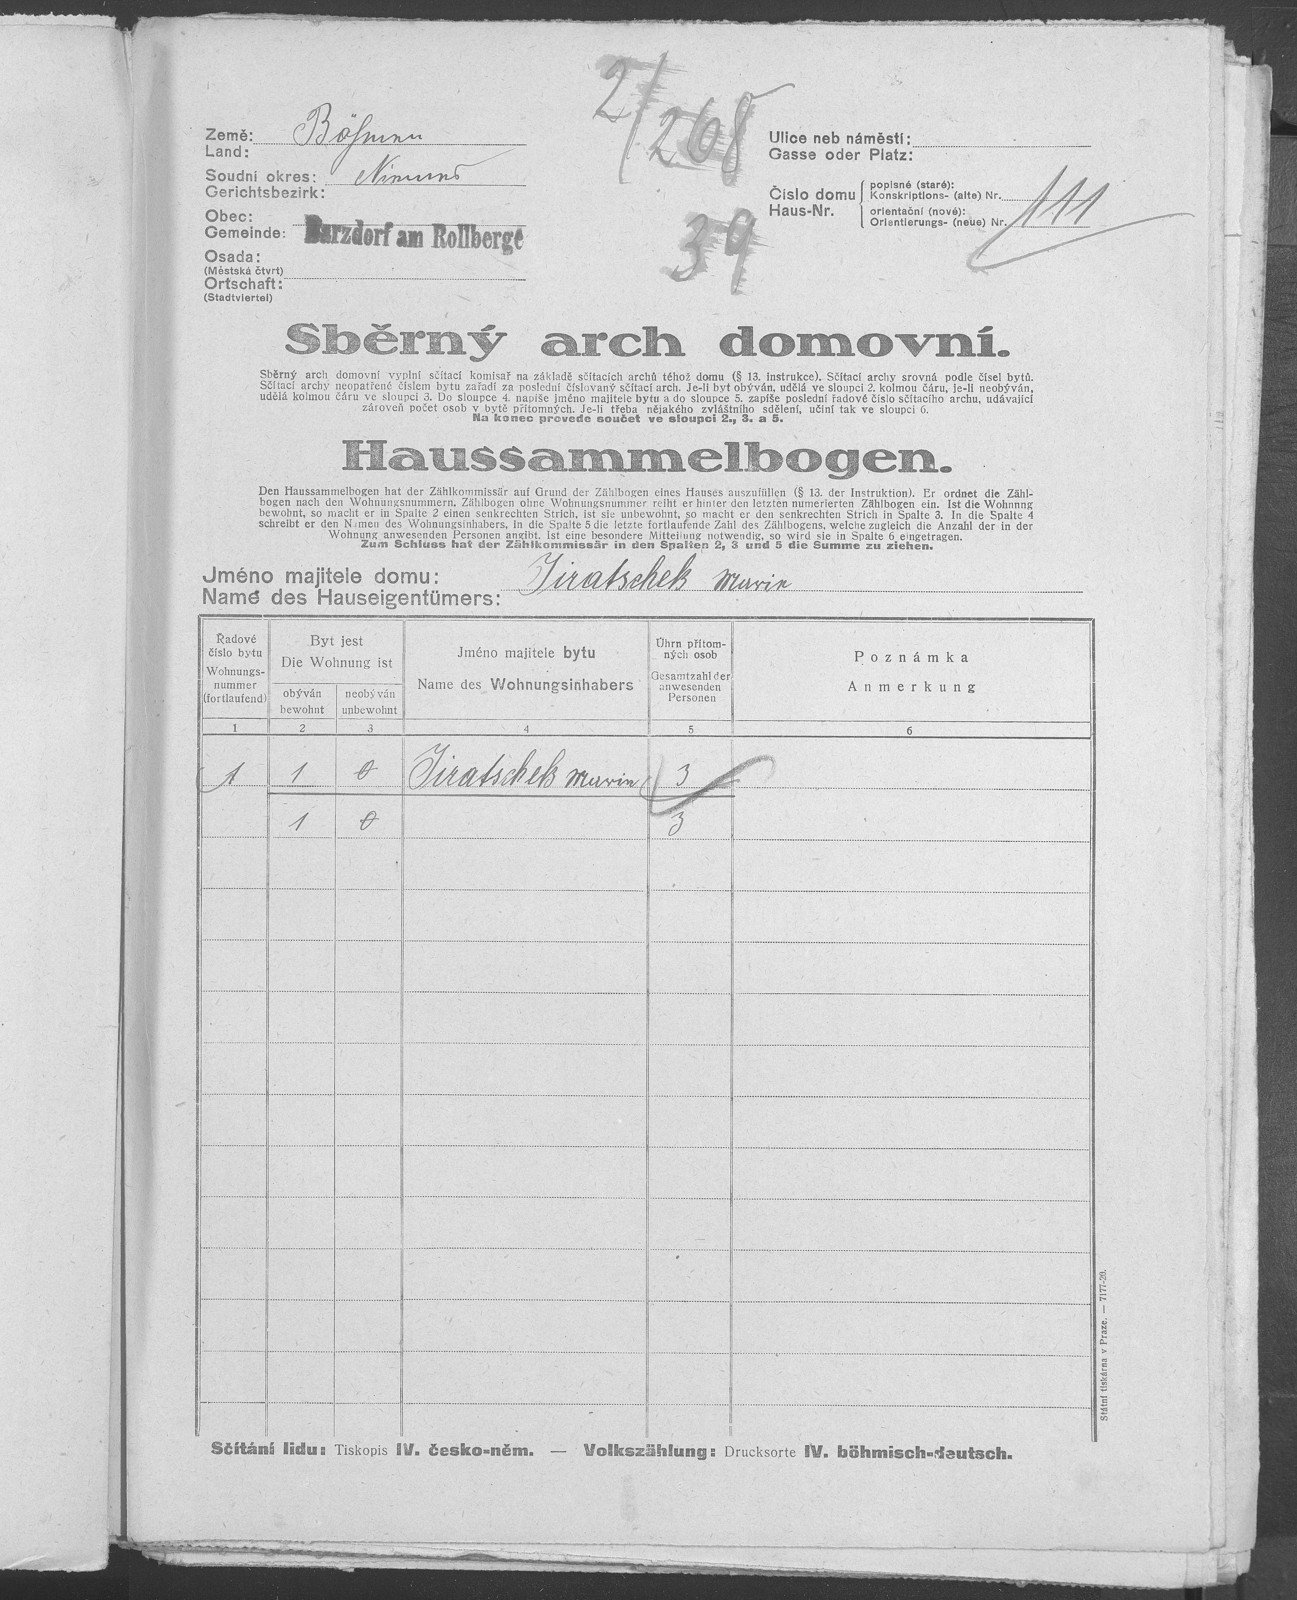 2/268
39
Země: Böhmen
Land:
Soudní okres: Niemes
Gerichtsbezirk:
Obec:
Gemeinde: Barzdorf am Rollberge
Osada:
(Městská čtvrt)
Ortschaft:
(Stadtviertel)
Ulice neb náměstí:
Gasse oder Platz:
Číslo domu
Haus-Nr.
popisné (staré):
Konskriptions- (alte) Nr.
orientační (nové):
Orientierungs- (neue) Nr.
111
Sběrný arch domovní.
Sběrný arch domovní vyplní sčítací komisař na základě sčítacích archů téhož domu (§ 13. instrukce). Sčítací archy srovná podle čísel bytů.
Sčítací archy neopatřené číslem bytu zařadí za poslední číslovaný sčítací arch. Je-li byt obýván, udělá ve sloupci 2. kolmou čáru, je-li neobýván,
udělá kolmou čáru ve sloupci 3. Do sloupce 4. napíše jméno majitele bytu a do sloupce 5. zapíše poslední řadové číslo sčítacího archu, udávající
zároveň počet osob v bytě přítomných. Je-li třeba nějakého zvláštního sdělení, učiní tak ve sloupci 6.
Na konec provede součet ve sloupci 2., 3. a 5.
Haussammelbogen.
Den Haussammelbogen hat der Zählkommissär auf Grund der Zählbogen eines Hauses auszufüllen (§ 13. der Instruktion). Er ordnet die Zähl-
bogen nach den Wohnungsnummern. Zählbogen ohne Wohnungsnummer reiht er hinter den letzten numerierten Zählbogen ein. Ist die Wohnnng
bewohnt, so macht er in Spalte 2 einen senkrechten Strich, ist sie unbewohnt, so macht er den senkrechten Strich in Spalte 3. In die Spalte 4
schreibt er den Namen des Wohnungsinhabers, in die Spalte 5 die letzte fortlaufende Zahl des Zählbogens, welche zugleich die Anzahl der in der
Wohnung anwesenden Personen angibt. Ist eine besondere Mitteilung notwendig, so wird sie in Spalte 6 eingetragen.
Zum Schluss hat der Zählkommissär in den Spalten 2, 3 und 5 die Summe zu ziehen.
Jméno majitele domu: Jiratschek Marie
Name des Hauseigentümers:
Řadové
číslo bytu
Wohnungs-
nummer
(fortlaufend)
Byt jest
Die Wohnung ist
obýván
bewohnt
neobýván
unbewohnt
Jméno majitele bytu
Name des Wohnungsinhabers
Úhrn přítom-
ných osob
Gesamtzahl der
anwesenden
Personen
Poznámka
Anmerkung
1 2 3 4 5 6
1 1 0 Jiratschek Marie 3
1 0 3
Státní tiskárna v Praze. — 7177-20.
Sčítání lidu: Tiskopis IV. česko-něm. — Volkszählung: Drucksorte IV. böhmisch-deutsch.